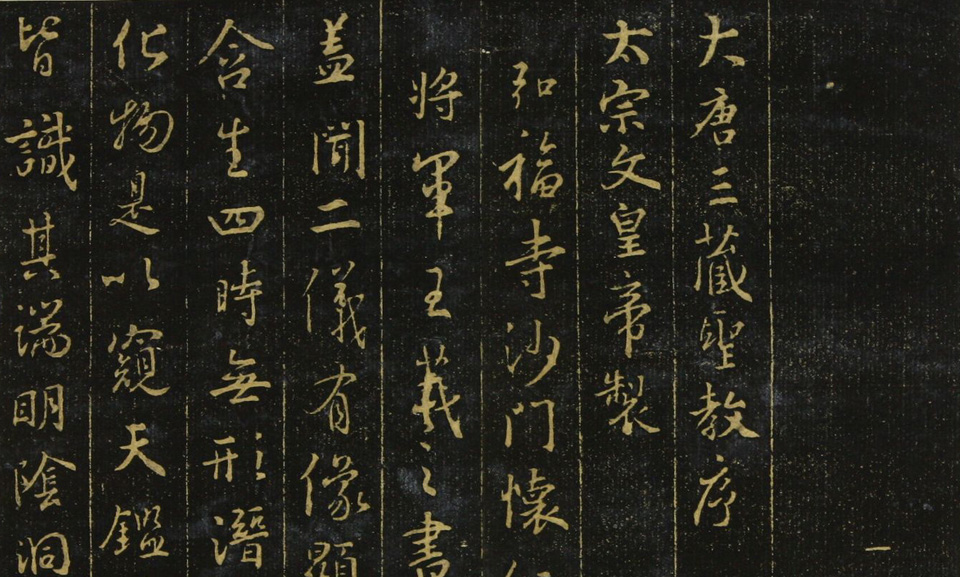 大唐三藏聖教序
太宗文皇帝製
弘福寺沙門懷
將軍王羲之書
蓋聞二儀有像顯
含生四時無形潛
化物是以窺天鑑
皆識其端明陰洞
一